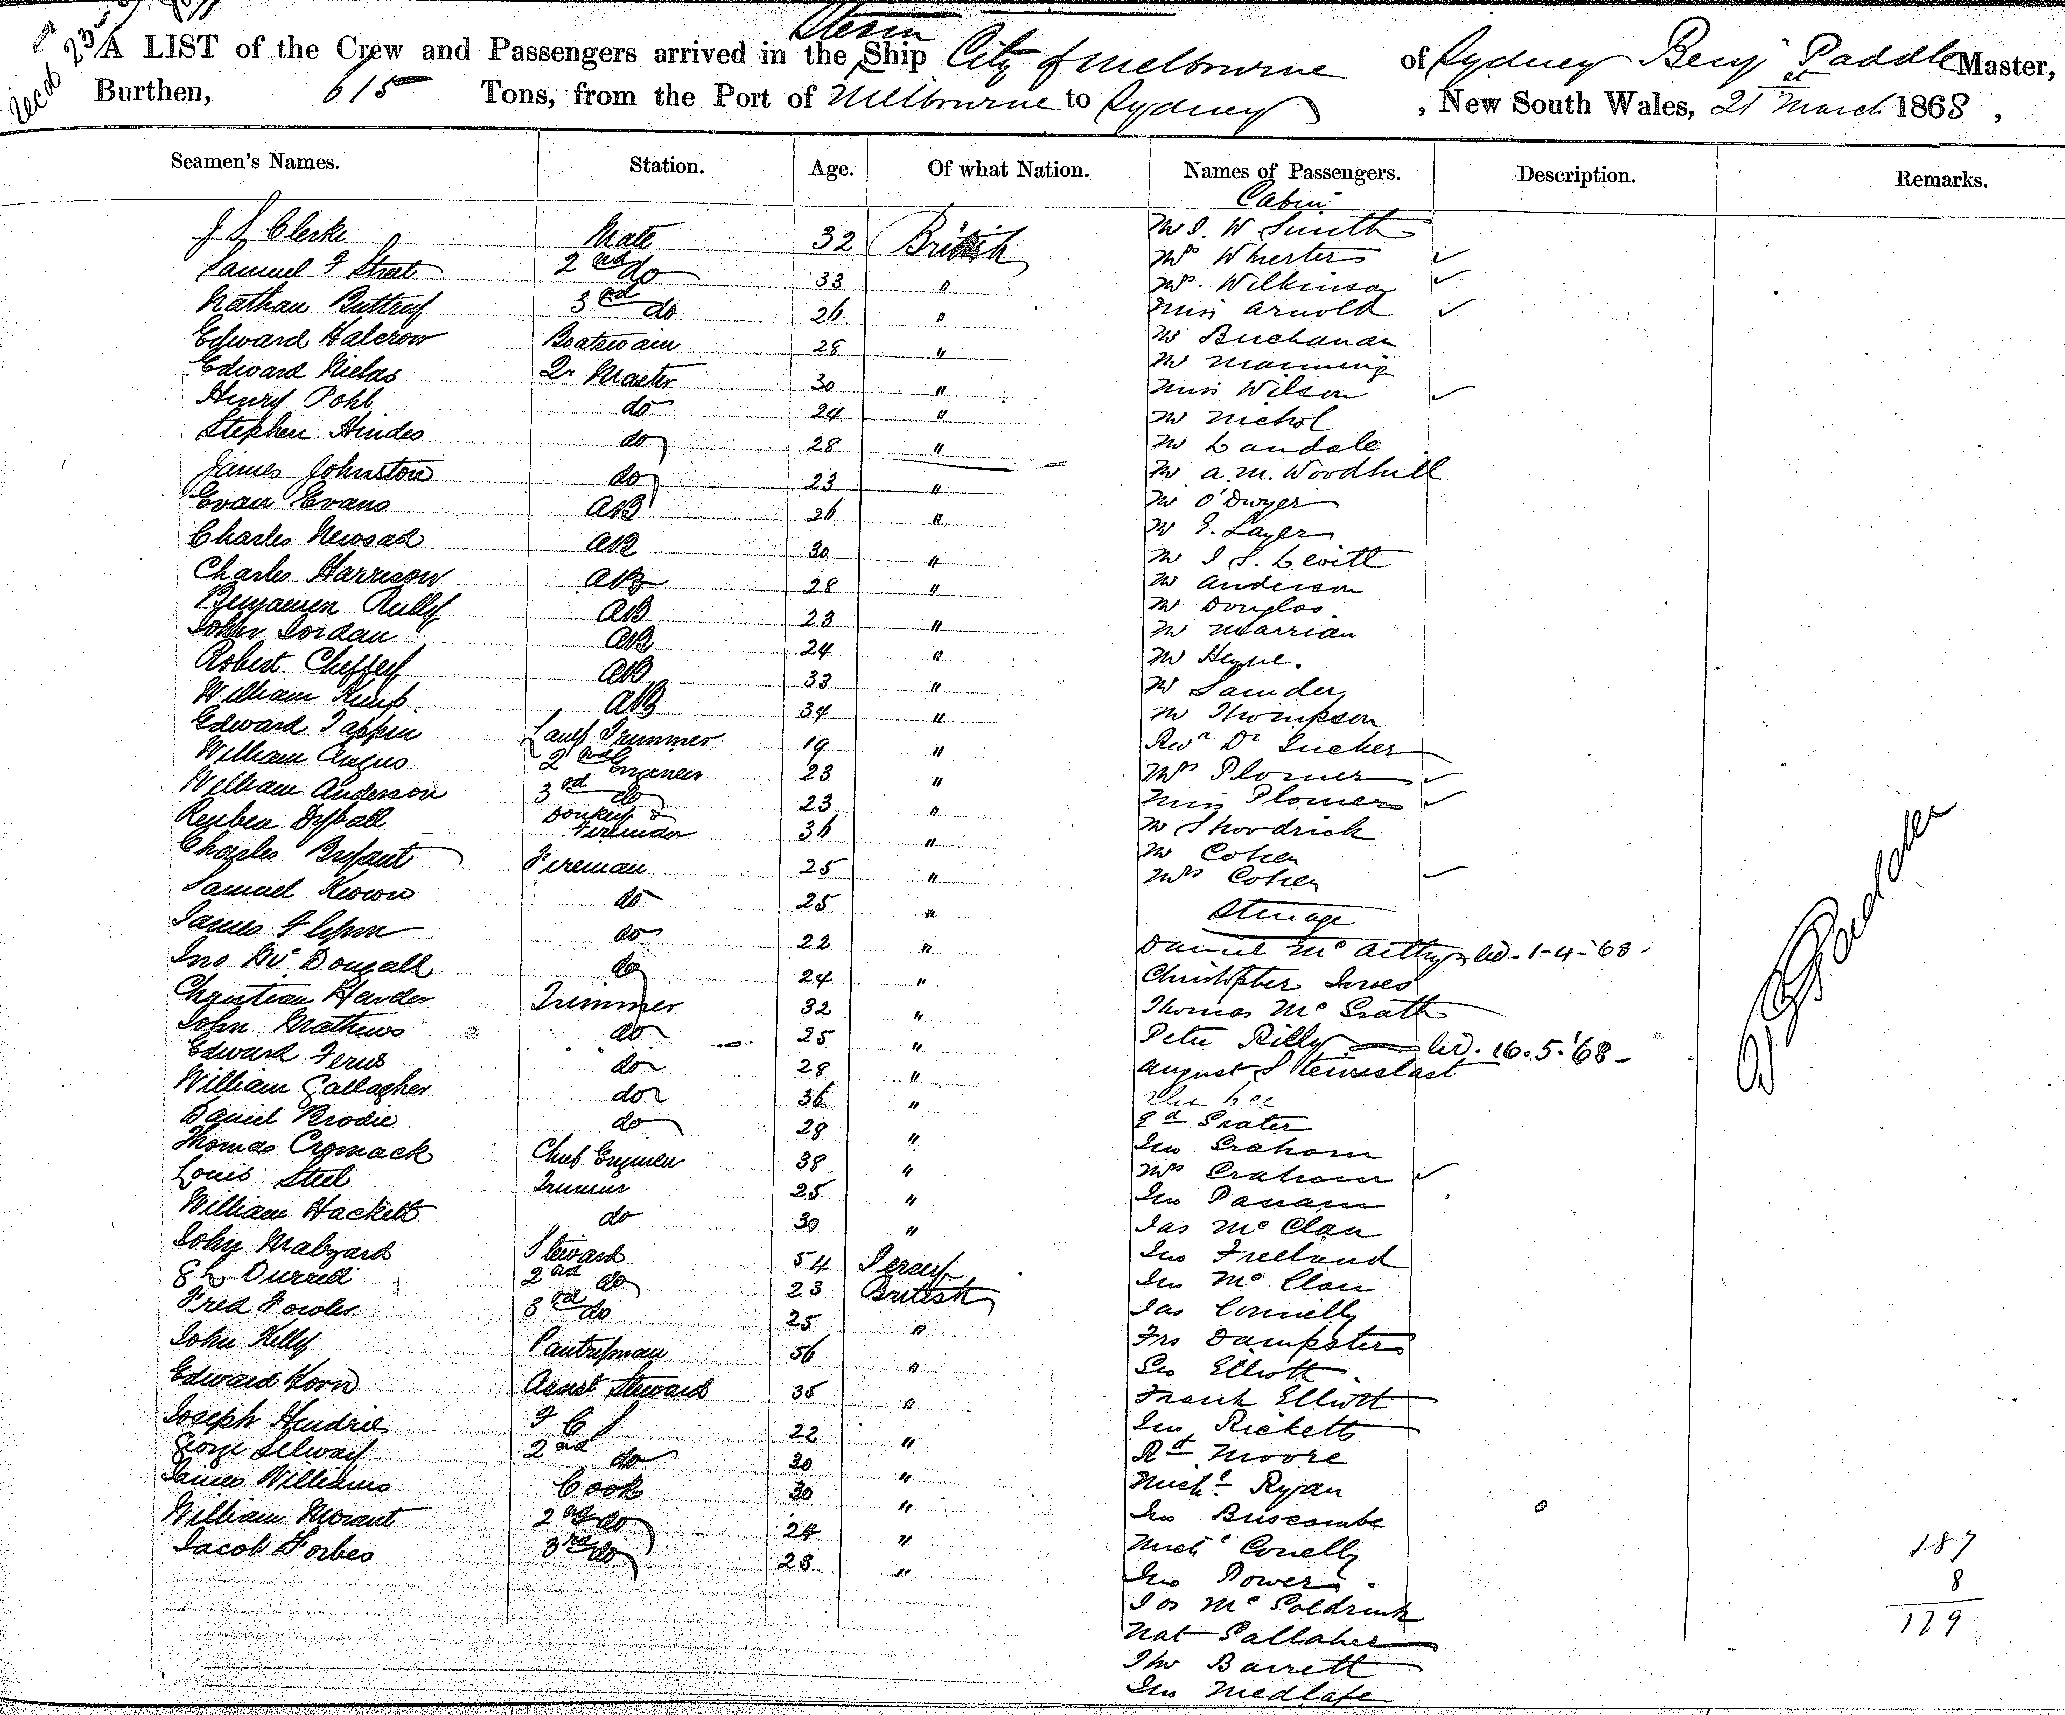 Steam
A LIST of the Crew and Passengers arrived in the Ship City of Melbourne of Sydney Benj Paddle Master,
Burthen, 615 Tons, from the Port of Melbourne to Sydney, New South Wales, 21st March 1868,
Seamen's Names. Station. Age. Of what Nation. Names of Passengers. Description. Remarks.
Cabin
J S Clerke Mate 32 British Mr J. W Smith
Samuel F Strat 2nd do 33 " Mrs
Nathan 3rd do 26 " Mrs. Wilkinson
Edward Halcrow Boatswain 28 " Miss Arnold
Edward Nielas Qr Master 30 " Mr Buchanan
Henry Pohl do 24 " Mr Manning
Stephen Hindes do 28 " Miss Wilson
James Johnston do 23 " Mr Nichol
Evan Evans AB 26 " Mr Landale
Charles Newsad AB 30 " Mr A. M. Woodhill
Charles Harrison AB 28 " Mr O'Dwyer
Benjamin Rully AB 23 " Mr E. Layer
John Jordan AB 24 " Mr J S. Levitt
Robert Cheffey AB 33 " Mr Anderson
William Kemp AB 34 " Mr Douglas
Edward Tappin Lamp Trimmer 19 " Mr Marrian
William Angus 2nd Engineer 23 " Mr
William Anderson 3rd do 23 " Mr Saunders
Reuben Dyball Donkey & Fireman 36 " Mr Thompson
Charles Bryant Fireman 25 " Revd Dr Tucker
Samuel Keown do 25 " Mrs Plomer
James Flynn do 22 " Miss Plomer
Jno McDougall do 24 " Mr Shoodrick
Christian Harder Trimmer 32 " Mr Cohen
John Mathews do 25 " Mrs Cohen
Steerage
Edward Ferus do 28 " Daniel McArthy ld. 1-4-'68.
William Gallagher do 36 " Christopher Jones
Daniel Brodie do 28 " Thomas McGrath
Thomas Cromack Chief Engineer 38 " Peter Rilly ld. 16.5.'68
Louis Steel Trimmer 25 " August
William Hackett do 30 "
John Malzard Steward 54 Jersey Ed Prater
E L Durrell 2nd do 23 British Jno Graham
Fred Fowler 3rd do 25 " Mrs Graham
John Kelly Pantryman 56 " Jno Panam
Edward Korn Assist Steward 35 " Jas McClan
Joseph Hendrie F C S 22 " Jno Freeland
George Selway 2nd do 30 " Jno McClan
James Williams Cook 30 " Jas Connelly
William Morant 2nd do 24 " Frs Dampster
Jacob Forbes 3rd do 28 " Geo Elliott
Frank Elliott
Jno Ricketts
Rd Moore
Michl Ryan
Jno Briscombe
Michl Conelly
Jno Power
Jos McGoldrick
Nat Gallaher
Tho Barrett
Jno Medlafe
B Paddle
187
8
179